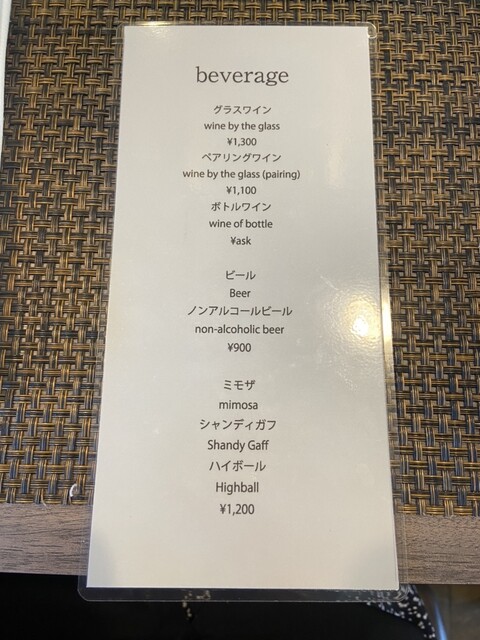 beverage
グラスワイン
wine by the glass
¥1,300
ペアリングワイン
wine by the glass (pairing)
¥1,100
ボトルワイン
wine of bottle
¥ask
ビール
Beer
ノンアルコールビール
non-alcoholic beer
¥900
ミモザ
mimosa
シャンディガフ
Shandy Gaff
ハイボール
Highball
¥1,200